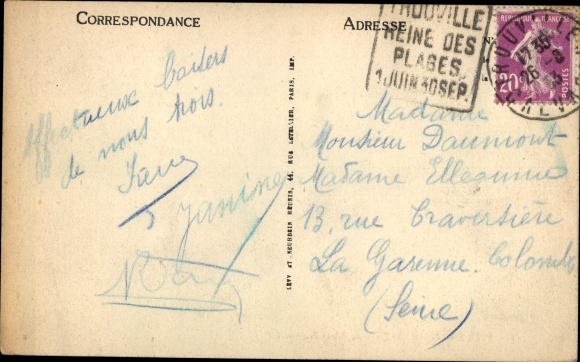 CORRESPONDANCE
ADRESSE
TROUVILLE
REINE DES
PLAGES
1 JUIN 30 SEP.
REPUBLIQUE FRANÇAISE
20
POSTES
TROUVILLE
17 35
26
Affectueux baisers
de nous trois.
Janine
LÉVY ET NEURDEIN RÉUNIS, 44, RUE LETELLIER, PARIS, IMP.
Madame
Monsieur Daumont
Madame
13, rue Traversière
La Garenne. Colombes
(Seine)